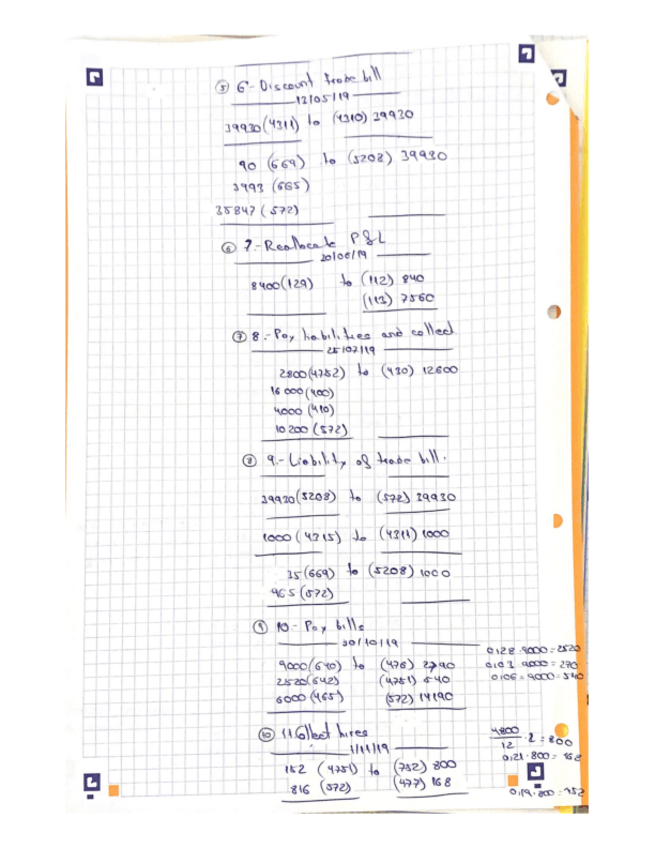 ⑤ 6- Discount trade bill
13/05/19
39930 (4311) to (4310) 39930
90 (669) to (5208) 39930
3993 (665)
35847 (572)
⑥ 7.- Reallocate P&L
20/06/19
8400 (129) to (112) 840
(113) 7560
⑦ 8.- Pay liabilities and collect
25/07/19
2800 (4752) to (430) 12600
16 000 (400)
4000 (410)
10 200 (572)
⑧ 9.- Liability of trade bill.
39930 (5208) to (572) 39930
1000 (4315) to (4311) 1000
35 (669) to (5208) 1000
965 (572)
⑨ 10- Pay bills
30/10/19
0'28 · 9000 = 2520
9000 (640) to (476) 2790
0'03 · 9000 = 270
2520 (642) (4751) 540
0'06 · 9000 = 540
6000 (465) (572) 14190
⑩ 11 Collect hires
1/11/19
4800
12 · 2 = 800
152 (4751) to (752) 800
0'21 · 800 = 168
816 (572) (477) 168
0'19 · 800 = 152